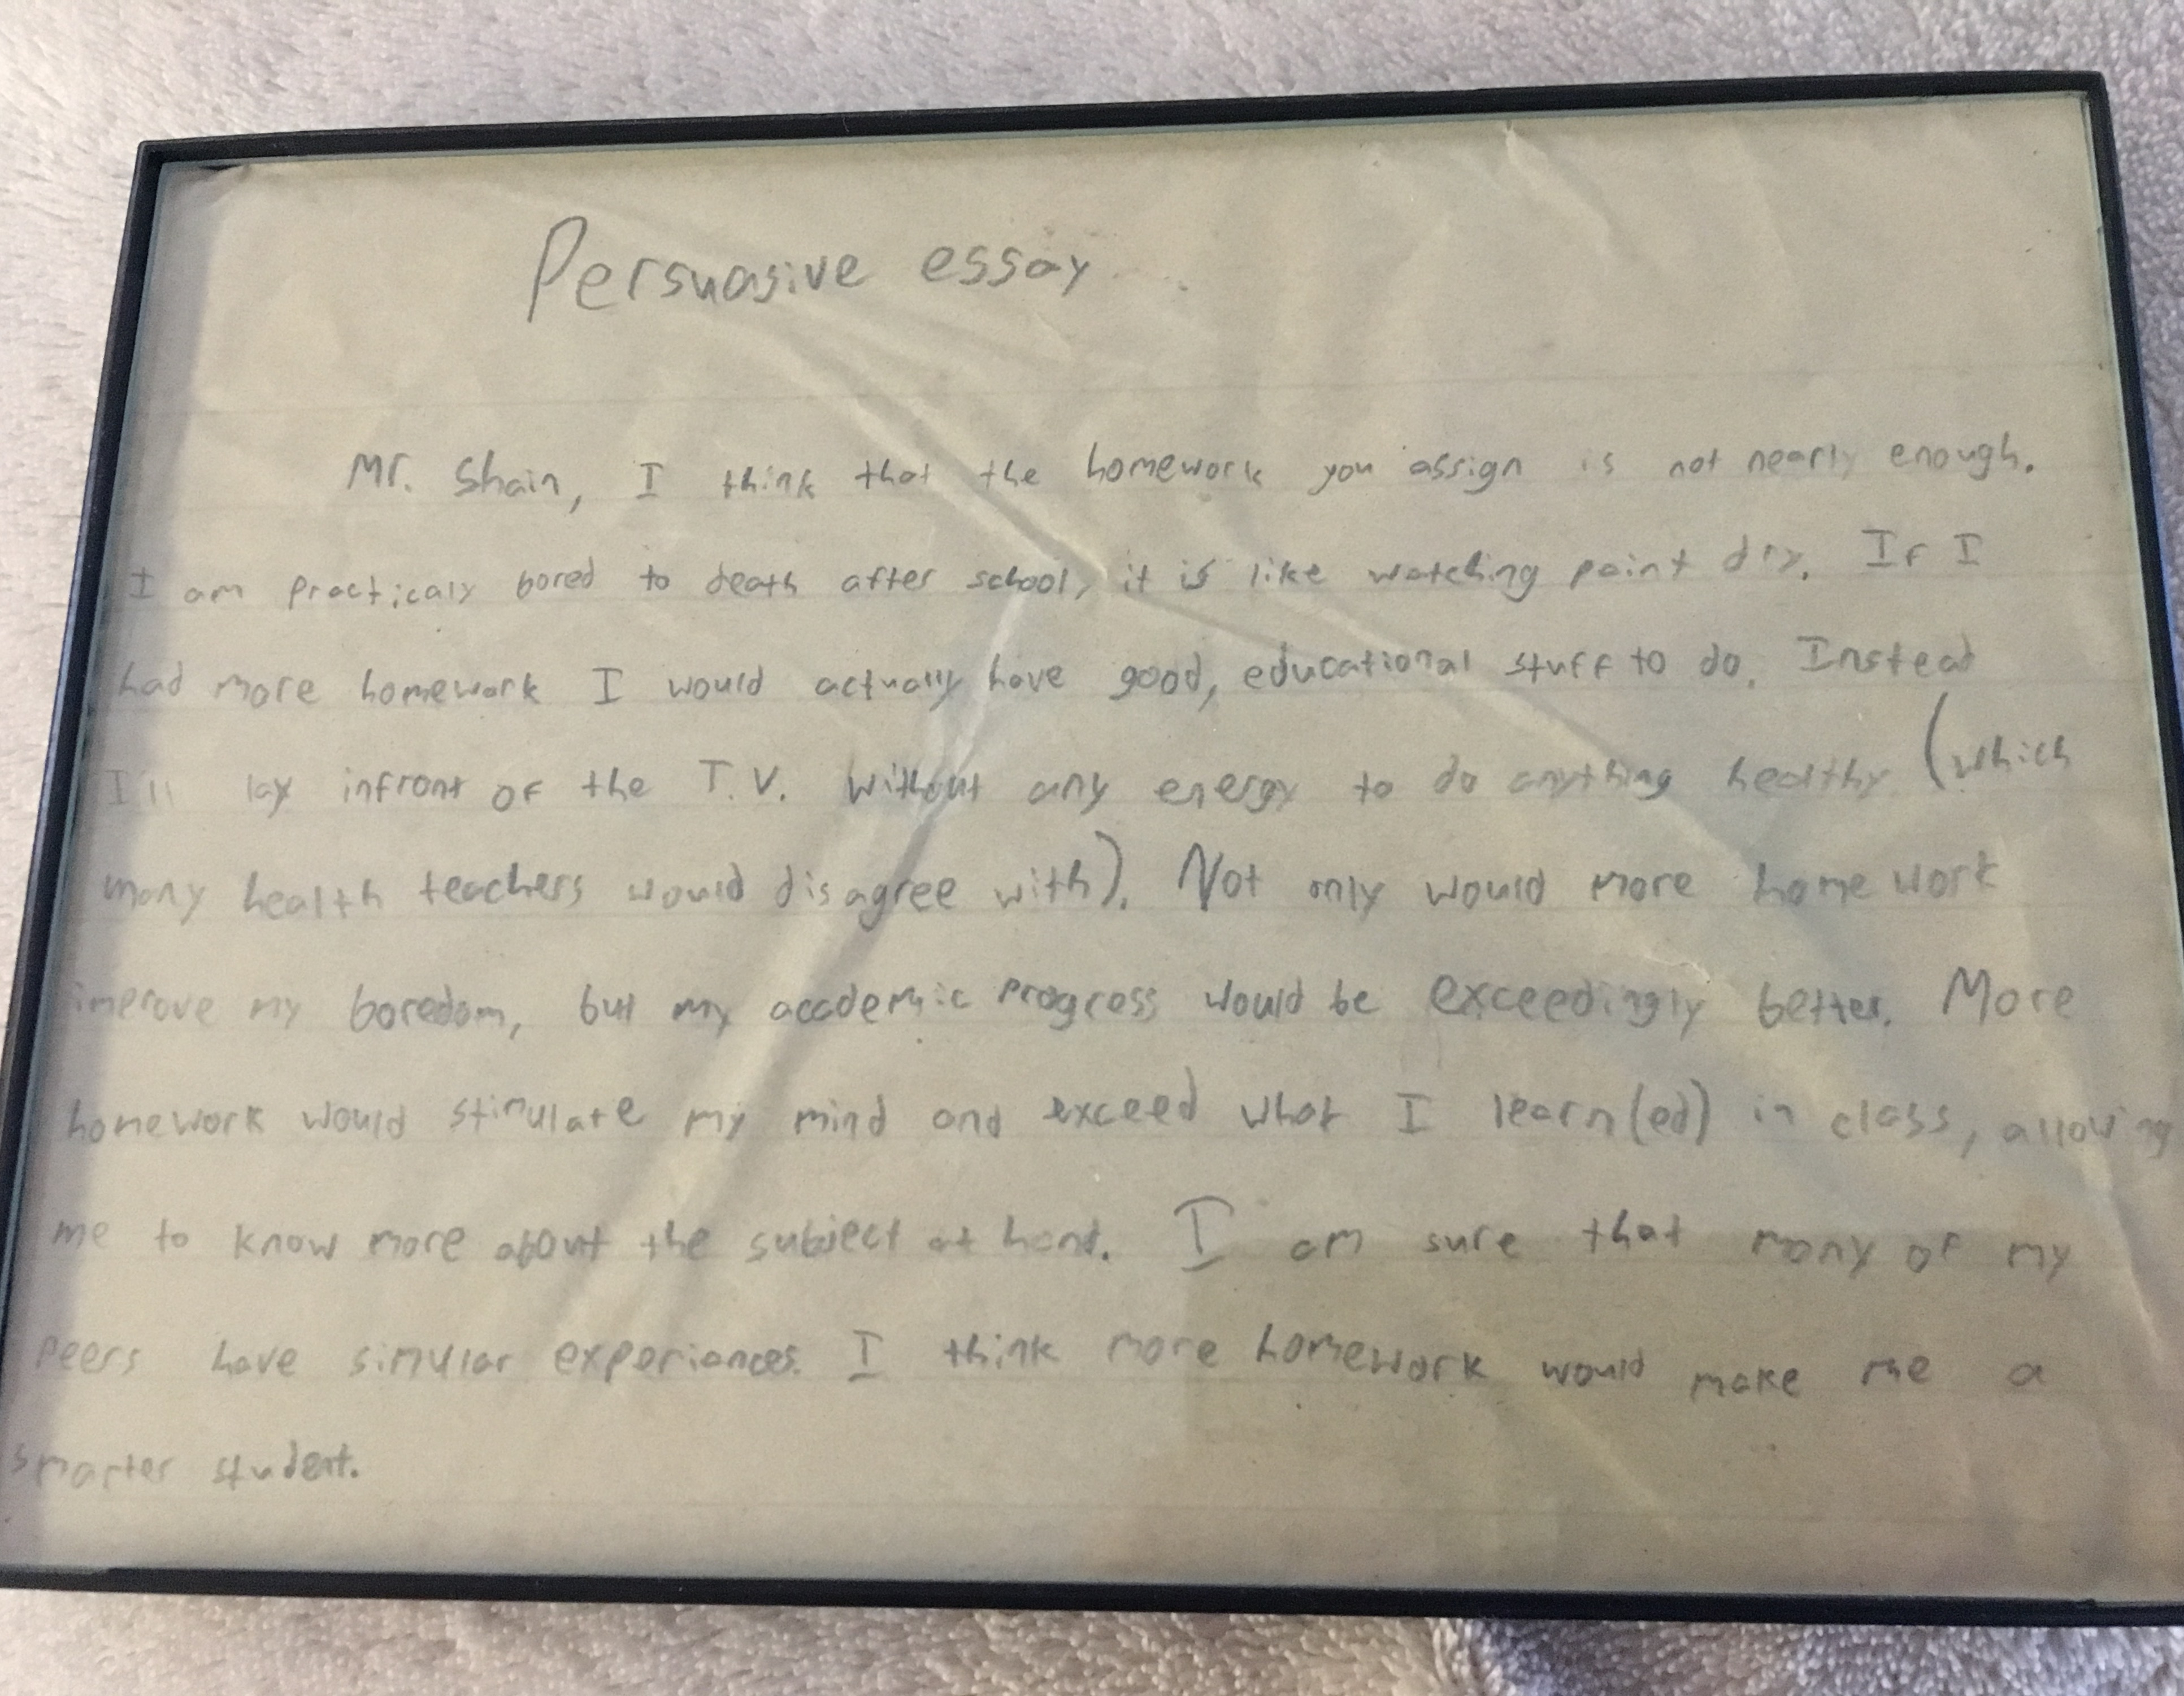 Persuasive essay
Mr. Shain, I think that the homework you assign is not nearly enough.
I am practicaly bored to death after school, it is like watching paint dry. If I
had more homework I would actually have good, educational stuff to do. Instead
I'll lay infront of the T.V. without any energy to do anything healthy (which
many health teachers would disagree with). Not only would more homework
improve my boredom, but my academic progress would be exceedingly better. More
homework would stimulate my mind and exceed what I learn(ed) in class, allowing
me to know more about the subject at hand. I am sure that many of my
peers have simular experiances. I think more homework would make me a
smarter student.